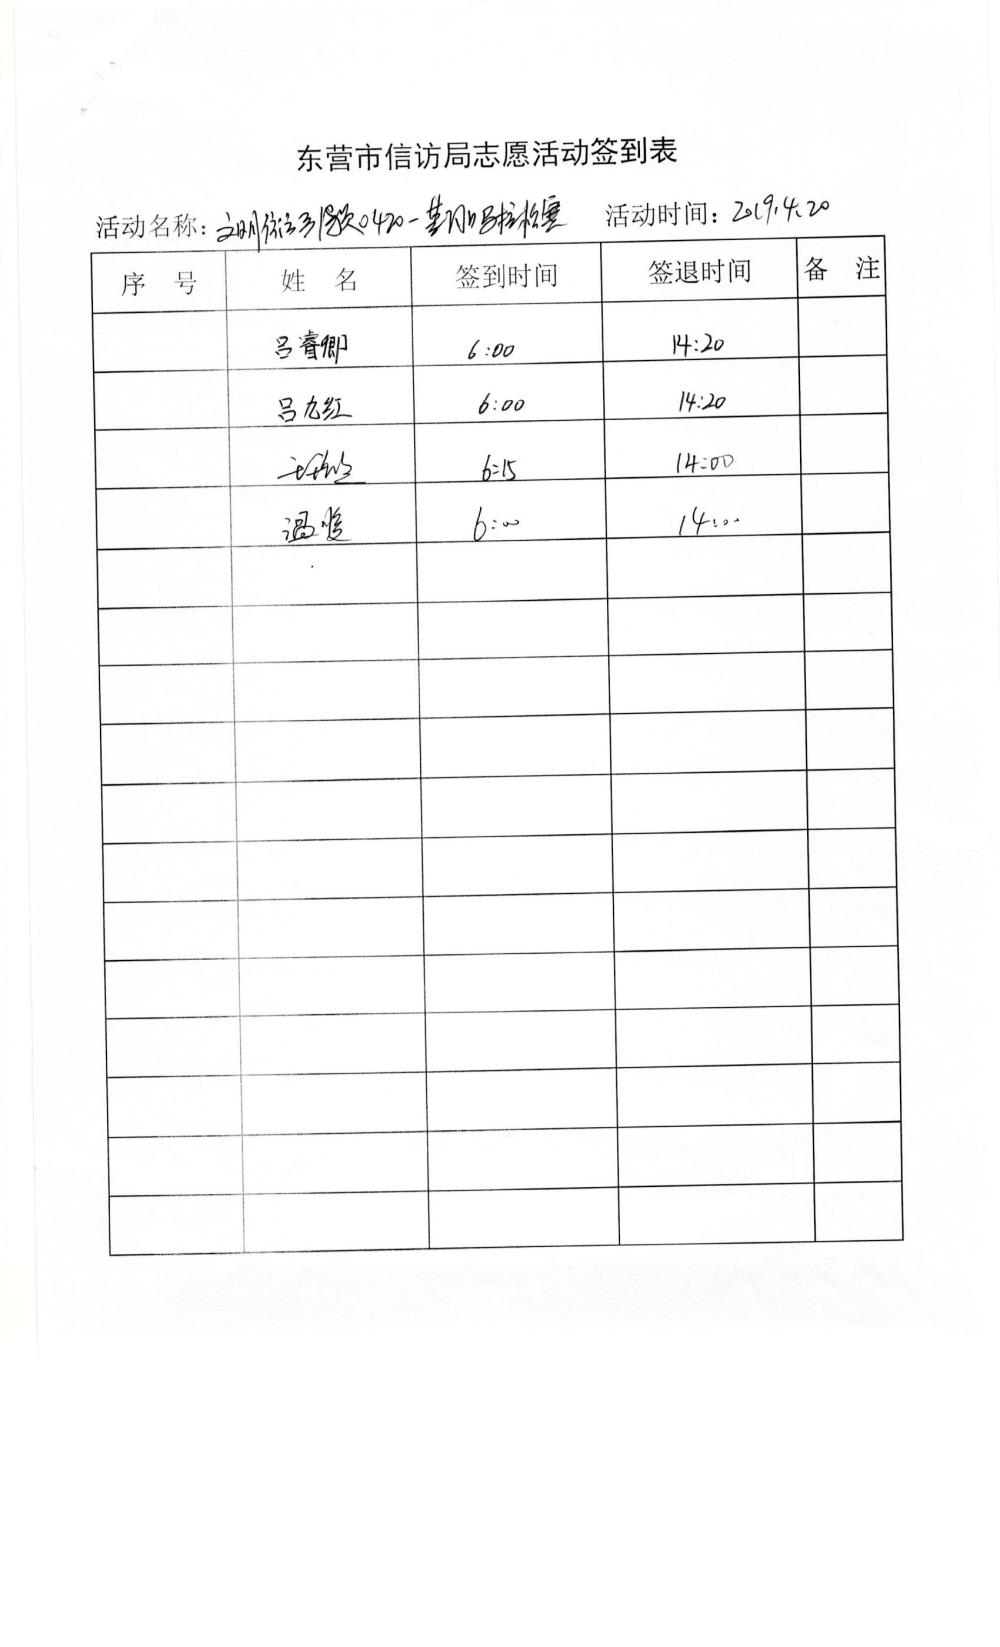 东营市信访局志愿活动签到表
活动名称：文明 0420-黄河口马拉松赛 活动时间：2019.4.20
序 号 姓 名 签到时间 签退时间 备 注
吕睿卿 6:00 14:20
吕九红 6:00 14:20
6:15 14:00
温馨 6:00 14:00